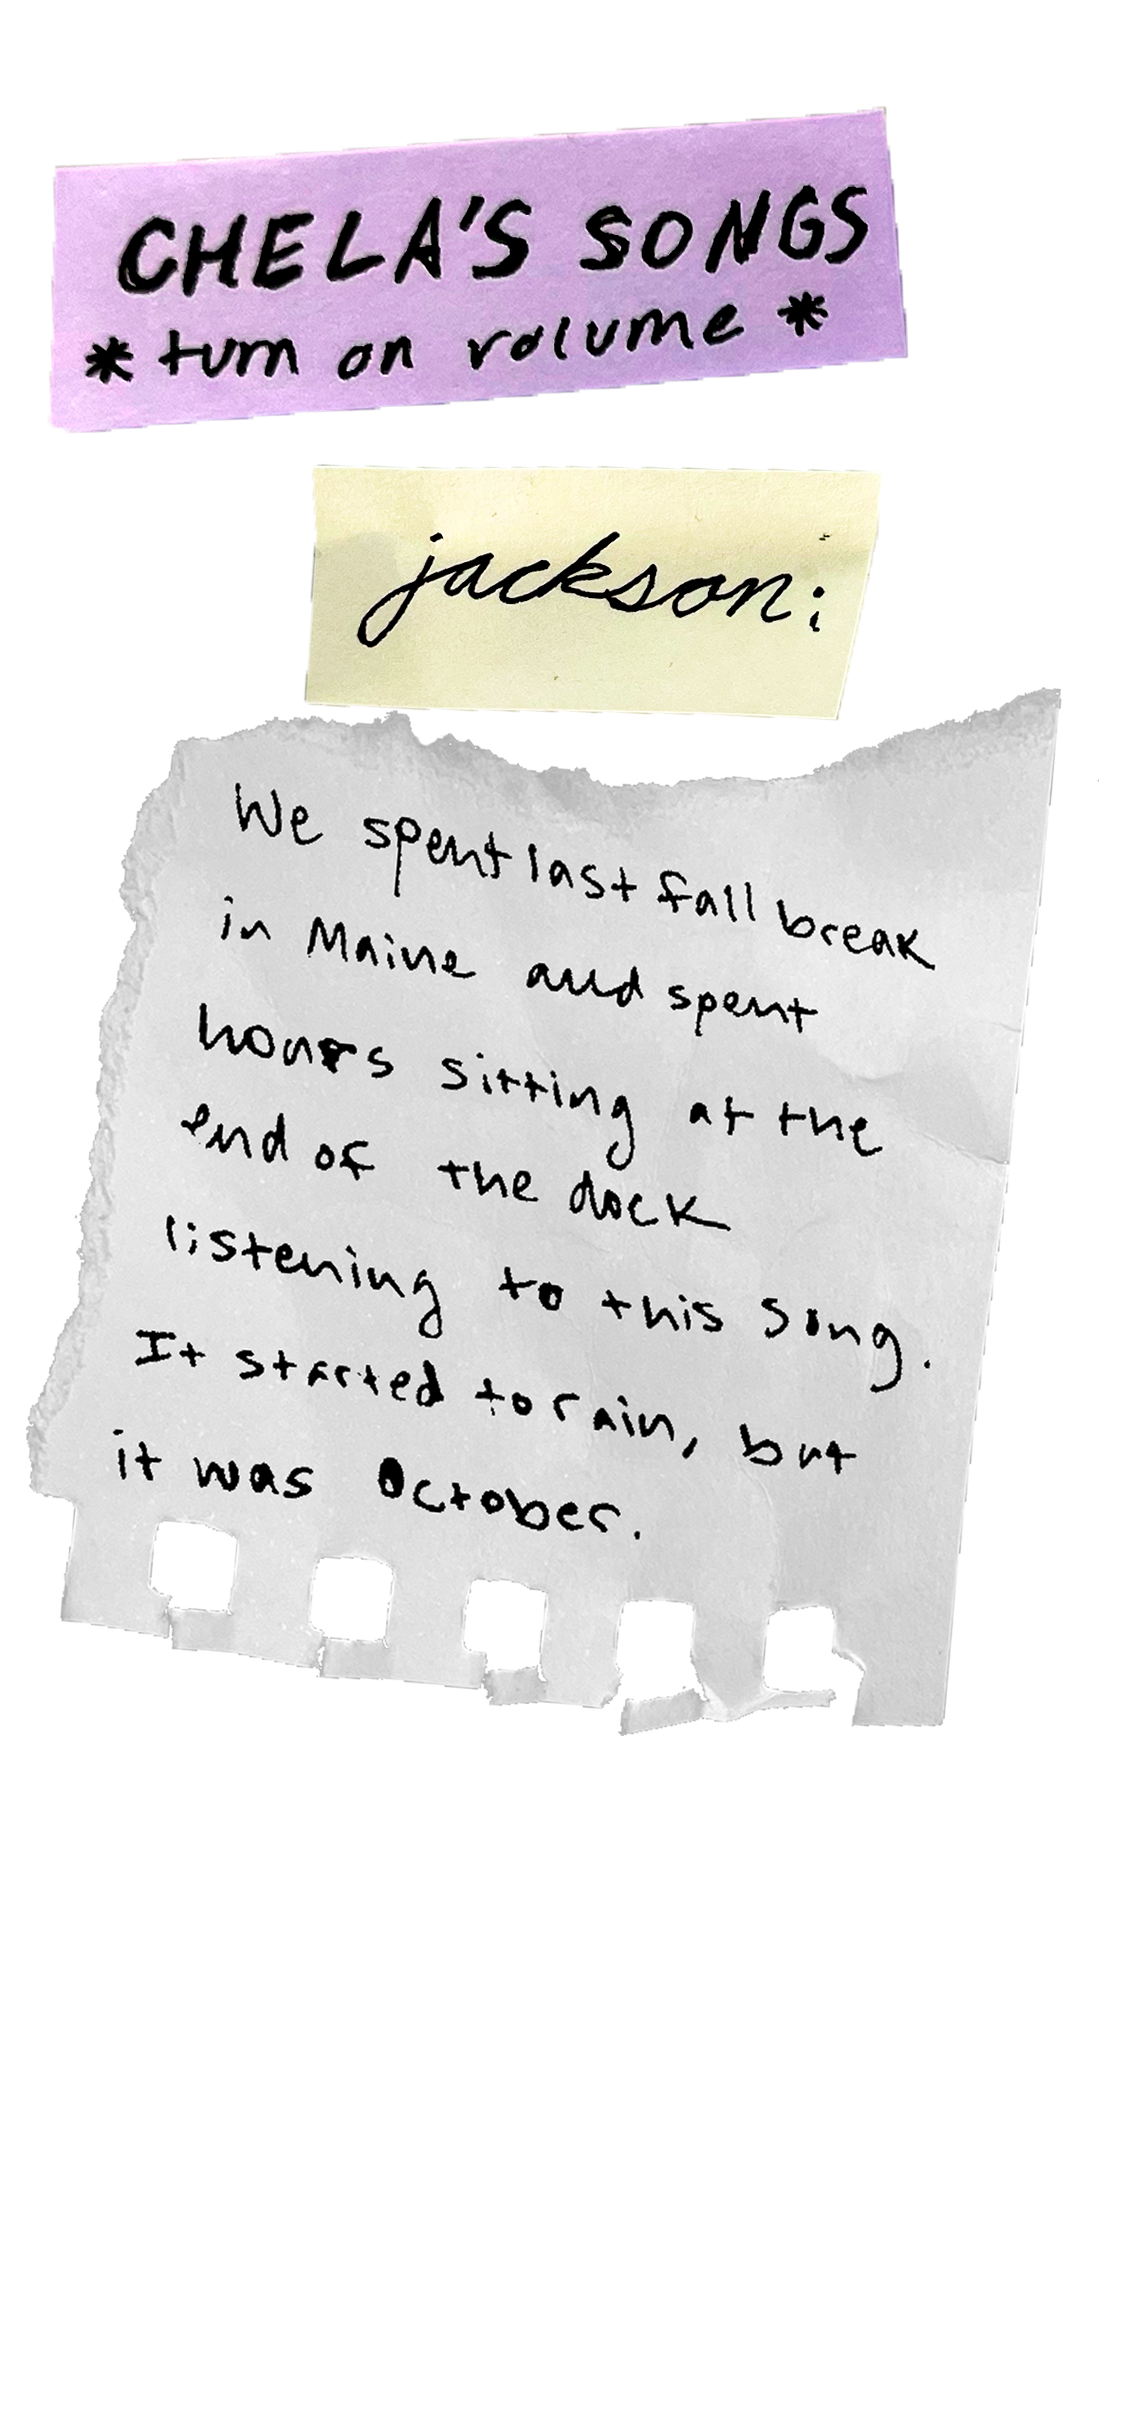 CHELA'S SONGS
* turn on volume *
jackson:
We spent last fall break
in Maine and spent
hours sitting at the
end of the dock
listening to this song.
It started to rain, but
it was October.